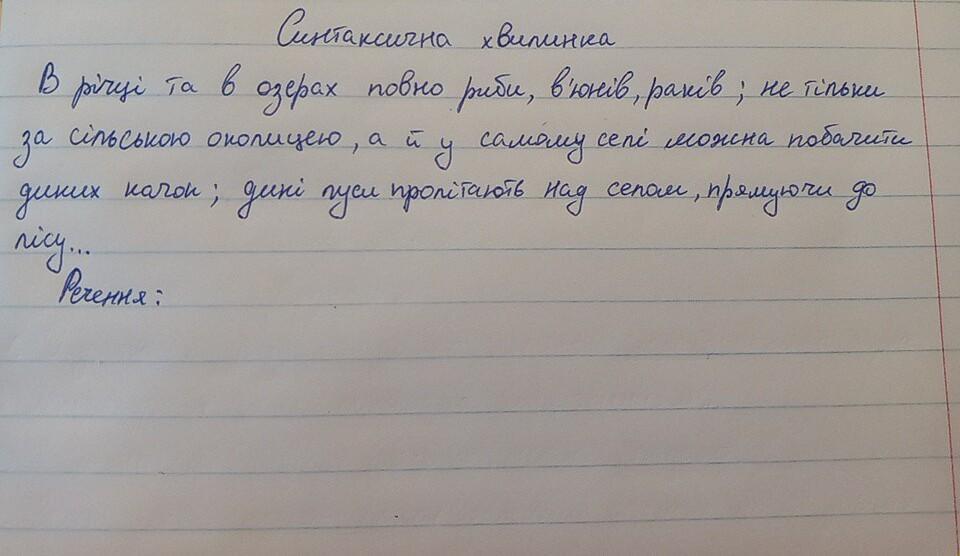 Синтаксична хвилинка
В річці та в озерах повно риби, в'юнів, раків; не тільки
за сільською околицею, а й у самому селі можна побачити
диких качок; дикі гуси пролітають над селом, прямуючи до
лісу...
Речення: